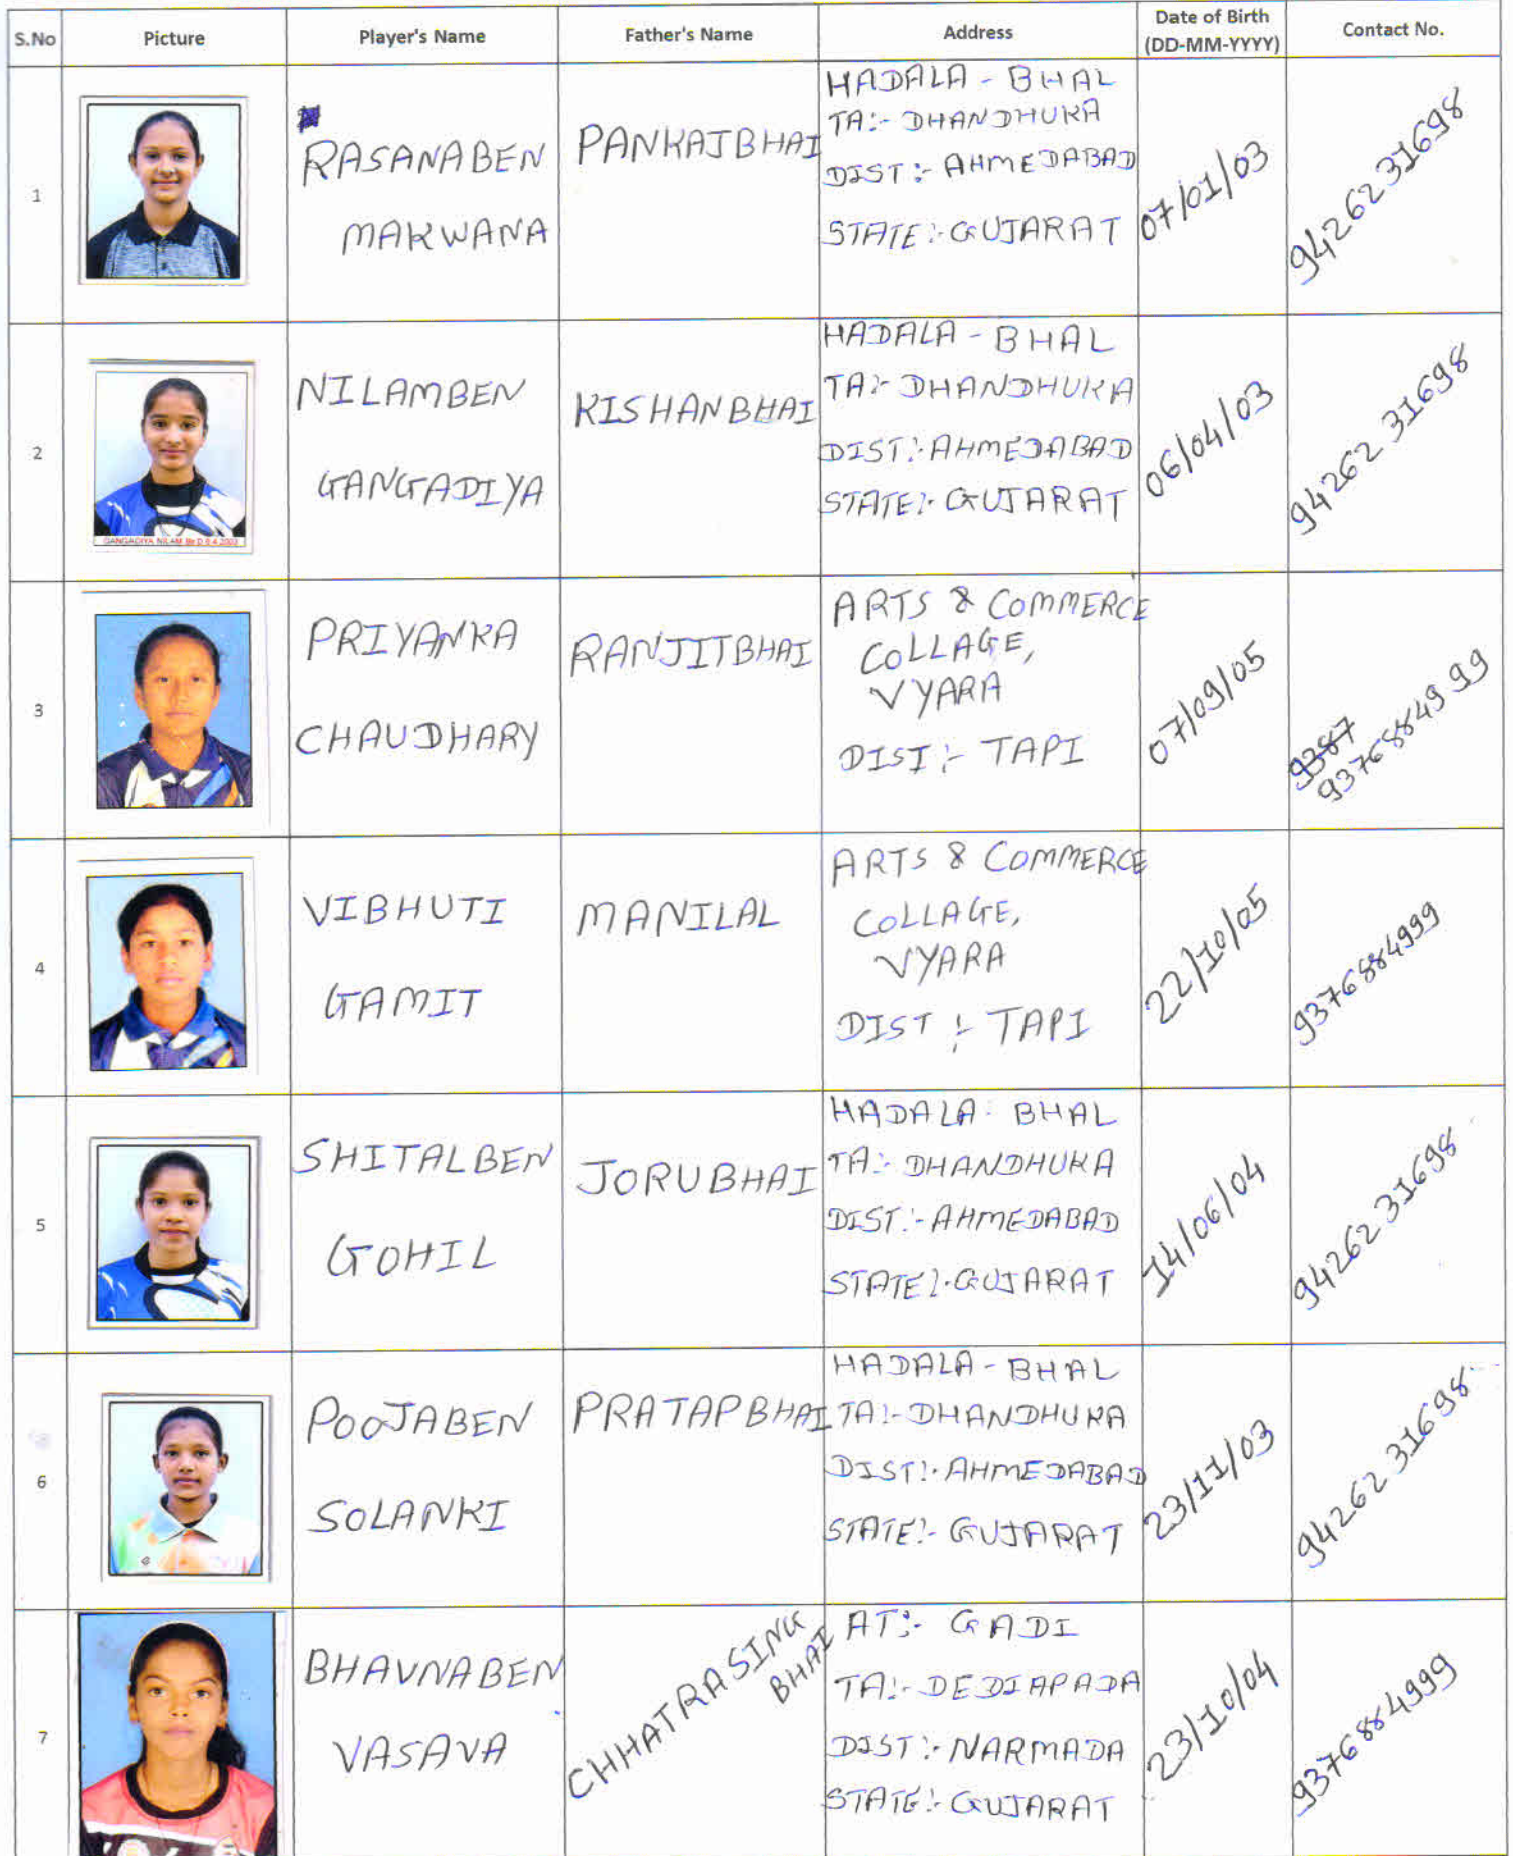 S.No Picture Player's Name Father's Name Address Date of Birth (DD-MM-YYYY) Contact No.
1
RASANABEN
MAKWANA
PANKAJBHAI
HADALA - BHAL
TA:- DHANDHUKA
DIST:- AHMEDABAD
STATE:- GUJARAT
07/01/03
94262 31698
2
GANGADIYA NILAM
NILAMBEN
GANGADIYA
KISHANBHAI
HADALA - BHAL
TA:- DHANDHUKA
DIST:- AHMEDABAD
STATE:- GUJARAT
06/04/03
94262 31698
3
PRIYANKA
CHAUDHARY
RANJITBHAI
ARTS & COMMERCE
COLLAGE,
VYARA
DIST:- TAPI
07/09/05
9387
93768849 99
4
VIBHUTI
GAMIT
MANILAL
ARTS & COMMERCE
COLLAGE,
VYARA
DIST:- TAPI
22/10/05
9376884999
5
SHITALBEN
GOHIL
JORUBHAI
HADALA - BHAL
TA:- DHANDHUKA
DIST:- AHMEDABAD
STATE:- GUJARAT
14/06/04
94262 31698
6
POOJABEN
SOLANKI
PRATAPBHAI
HADALA - BHAL
TA:- DHANDHUKA
DIST:- AHMEDABAD
STATE:- GUJARAT
23/11/03
94262 31698
7
BHAVNABEN
VASAVA
CHHATRASING
BHAI
AT:- GADI
TA:- DEDIAPADA
DIST:- NARMADA
STATE:- GUJARAT
23/10/04
9376884999